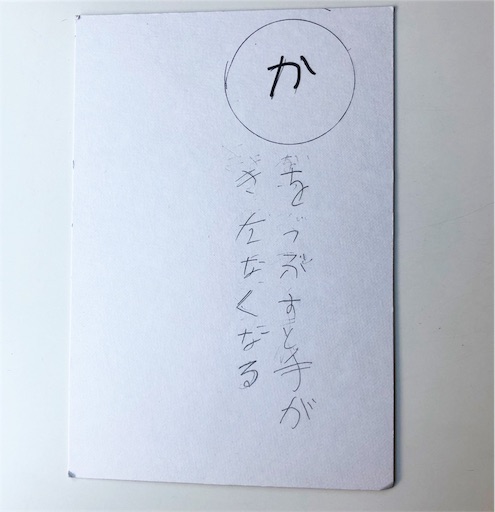 か
をつぶすと手が
きたなくなる